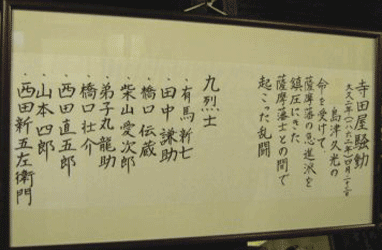 寺田屋騒動
文久二年(一八六二年)四月二十三日
島津久光の
命を受けて、
薩摩藩の急進派を
鎮圧にきた
薩摩藩士との間で
起こった乱闘
九烈士
・有馬新七
・田中謙助
・橋口伝蔵
・柴山愛次郎
・弟子丸龍助
・橋口壮介
・西田直五郎
・山本四郎
・西田新五左衛門